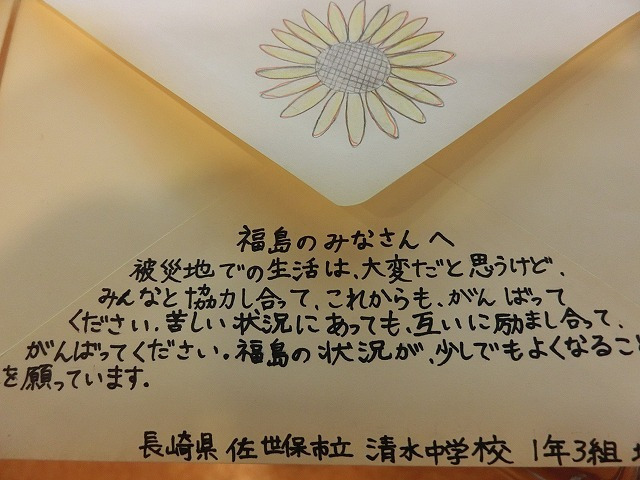 福島のみなさんへ
被災地での生活は、大変だと思うけど、
みんなと協力し合って、これからも、がんばって
ください。苦しい状況にあっても、互いに励まし合って、
がんばってください。福島の状況が、少しでもよくなること
を願っています。
長崎県 佐世保市立 清水中学校 1年3組